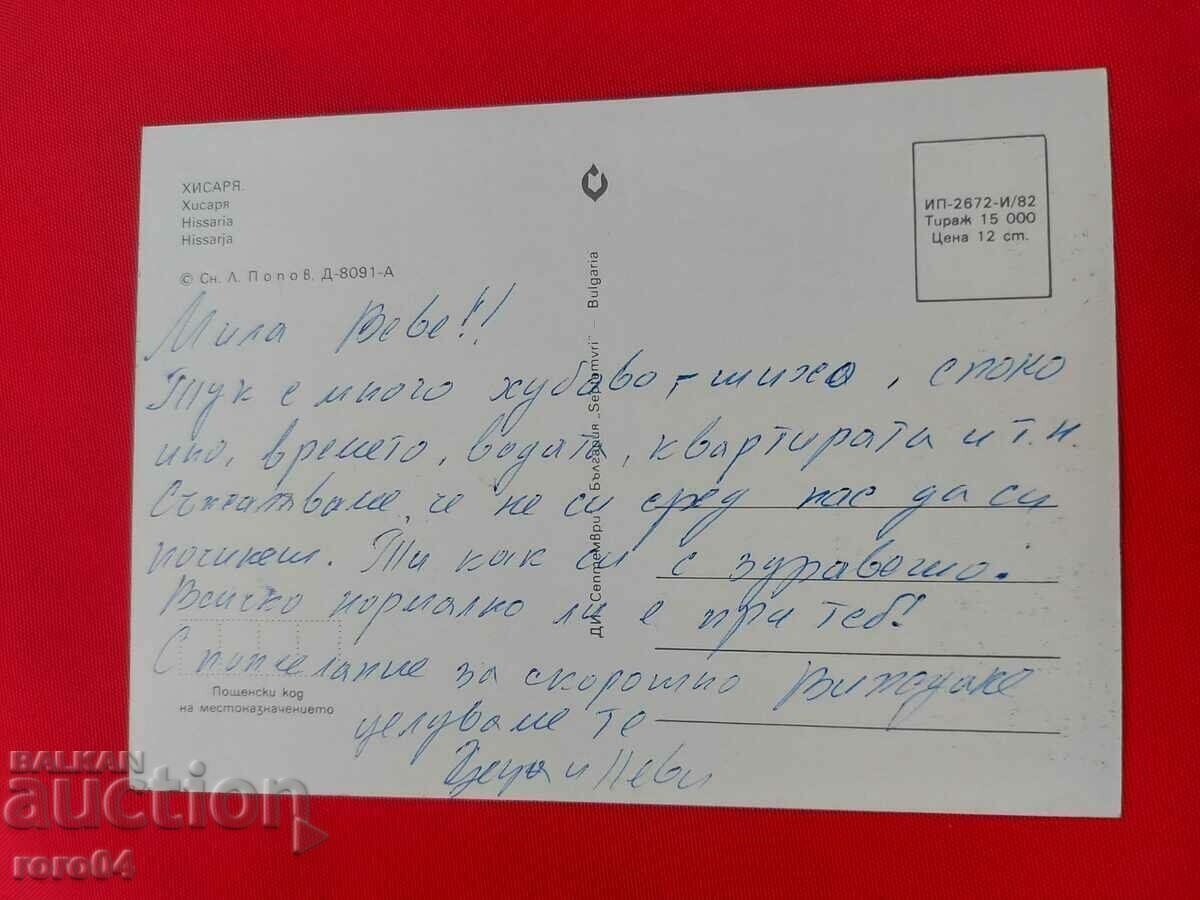 ХИСАРЯ.
Хисаря
Hissaria
Hissarja
© Сн. Л. Попов. Д-8091-А
ИП-2672-И/82
Тираж 15 000
Цена 12 ст.
ДИ „Септември" България „Septemvri" – Bulgaria
Мила Веве!!
Тук е много хубаво, – тихо, споко
ино, времето, водата, квартирата и т.н.
Съжаляваме, че не си сред нас да си
починеш. Ти как си с здравето.
Всичко нормално ли е при теб!
С пожелание за скорошно виждане
целуваме те
и Певи
Пощенски код
на местоназначението
BALKAN
auction
roro04